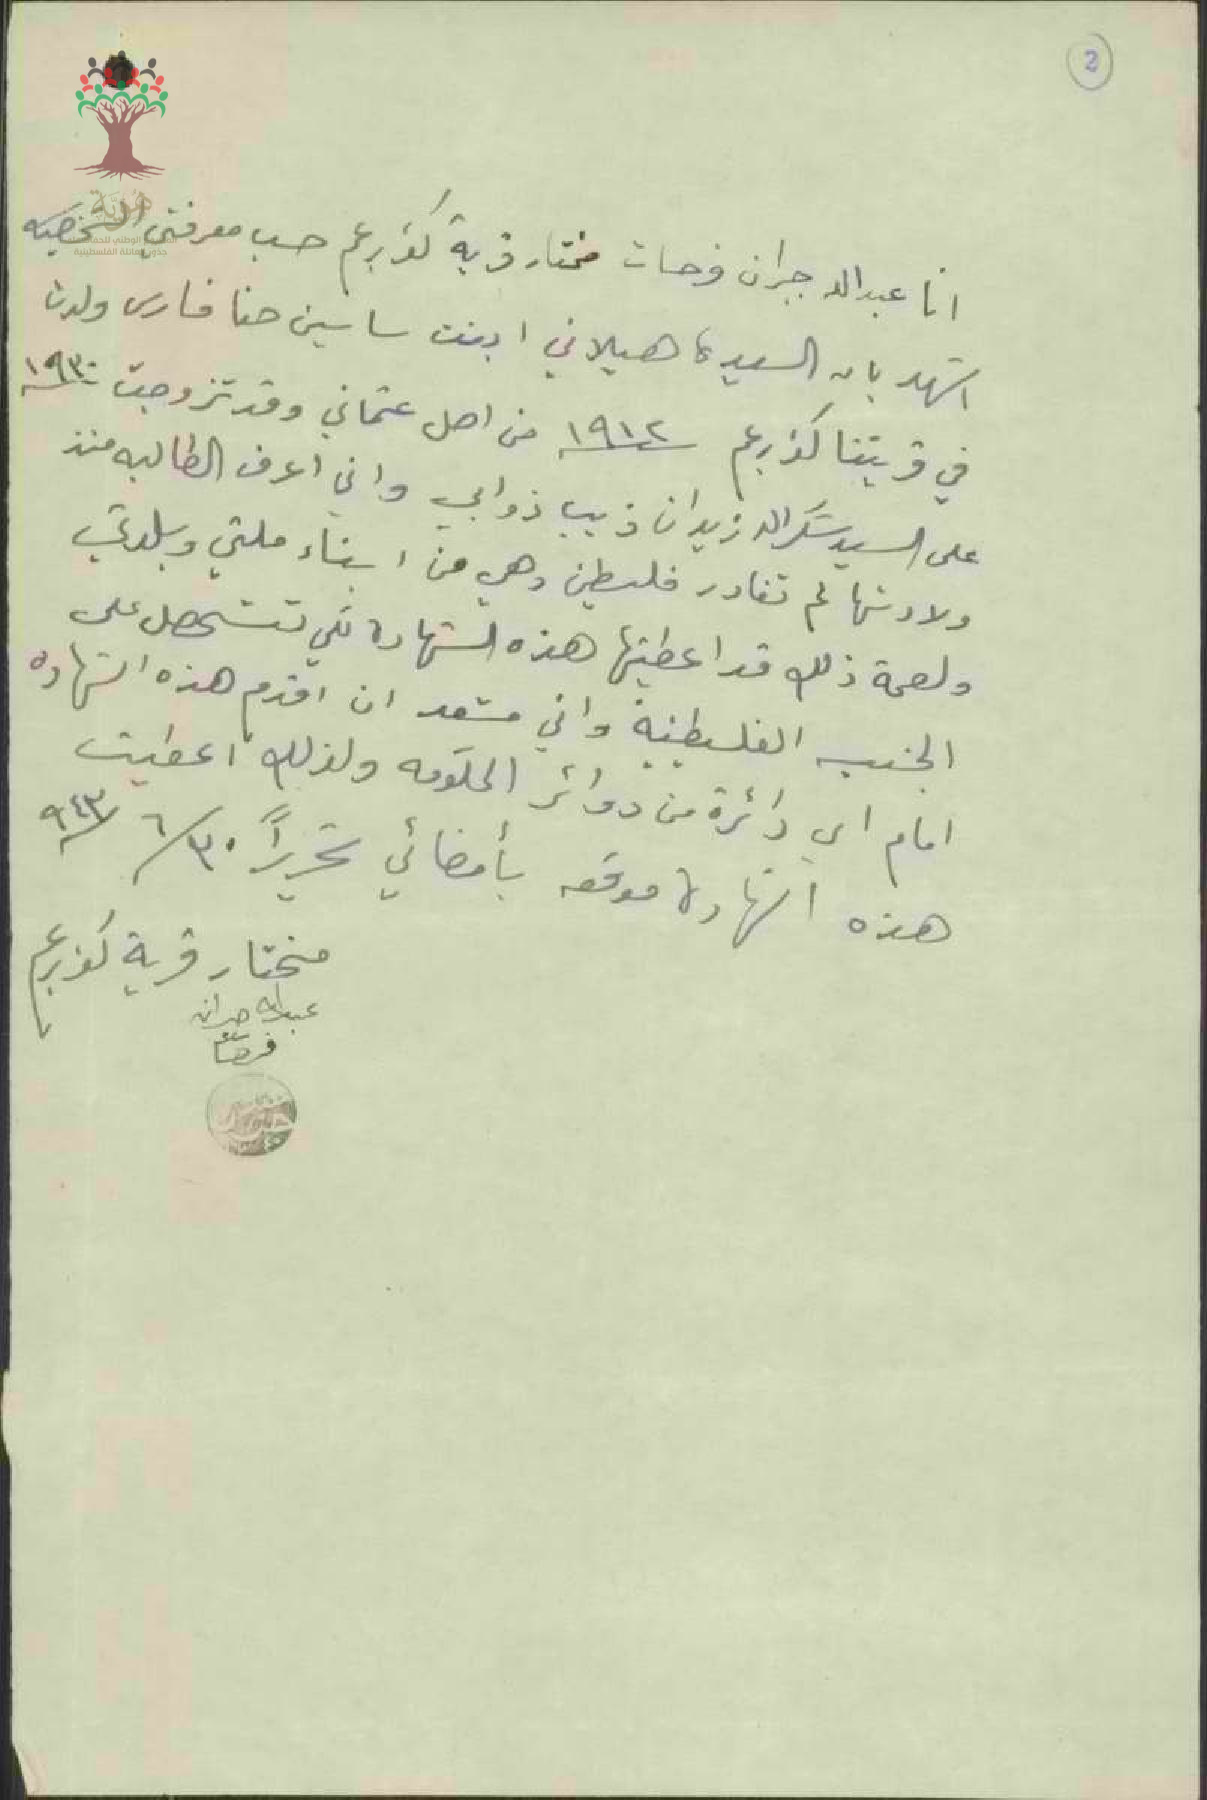 2
هوية
انا عبدالله جبران فرحات مختار قرية كفربرعم حسب معرفتي الشخصيه
اشهد بان السيدة هيلاني ابنت ساسين حنا فارس ولدت
في قريتنا كفربرعم سنة ١٩١٢ من اصل عثماني وقد تزوجت سنة ١٩٣٠
على السيد شكرالله زيدان ذيب ذوابي واني اعرف الطالبه منذ
ولادتها لم تغادر فلسطين وهي من ابناء ملتي وبلدتي
ولصحة ذلك قد اعطيتها هذه الشهادة لكي تستحصل على
الجنسيه الفلسطينية واني مستعد ان اقدم هذه الشهاده
امام اي دائرة من دوائر الحكومه ولذلك اعطيت
هذه الشهادة موقعه بأمضائي تحريراً ٣٠/٦/٩٤٣
مختار قرية كفربرعم
عبدالله جبران
فرحات